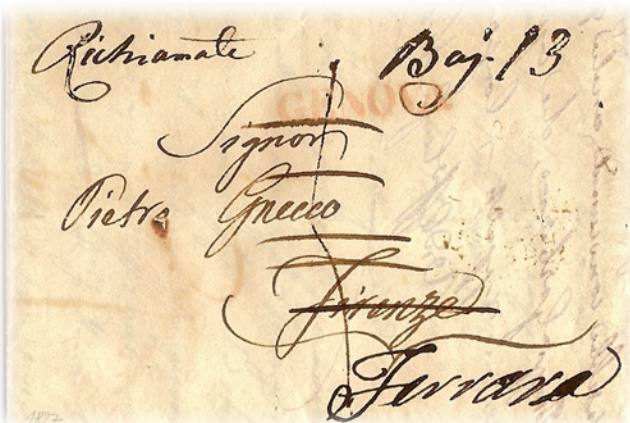 Richiamate Baj. 13
GENOVA
Signor
Pietro Gnecco
Firenze
Ferrara